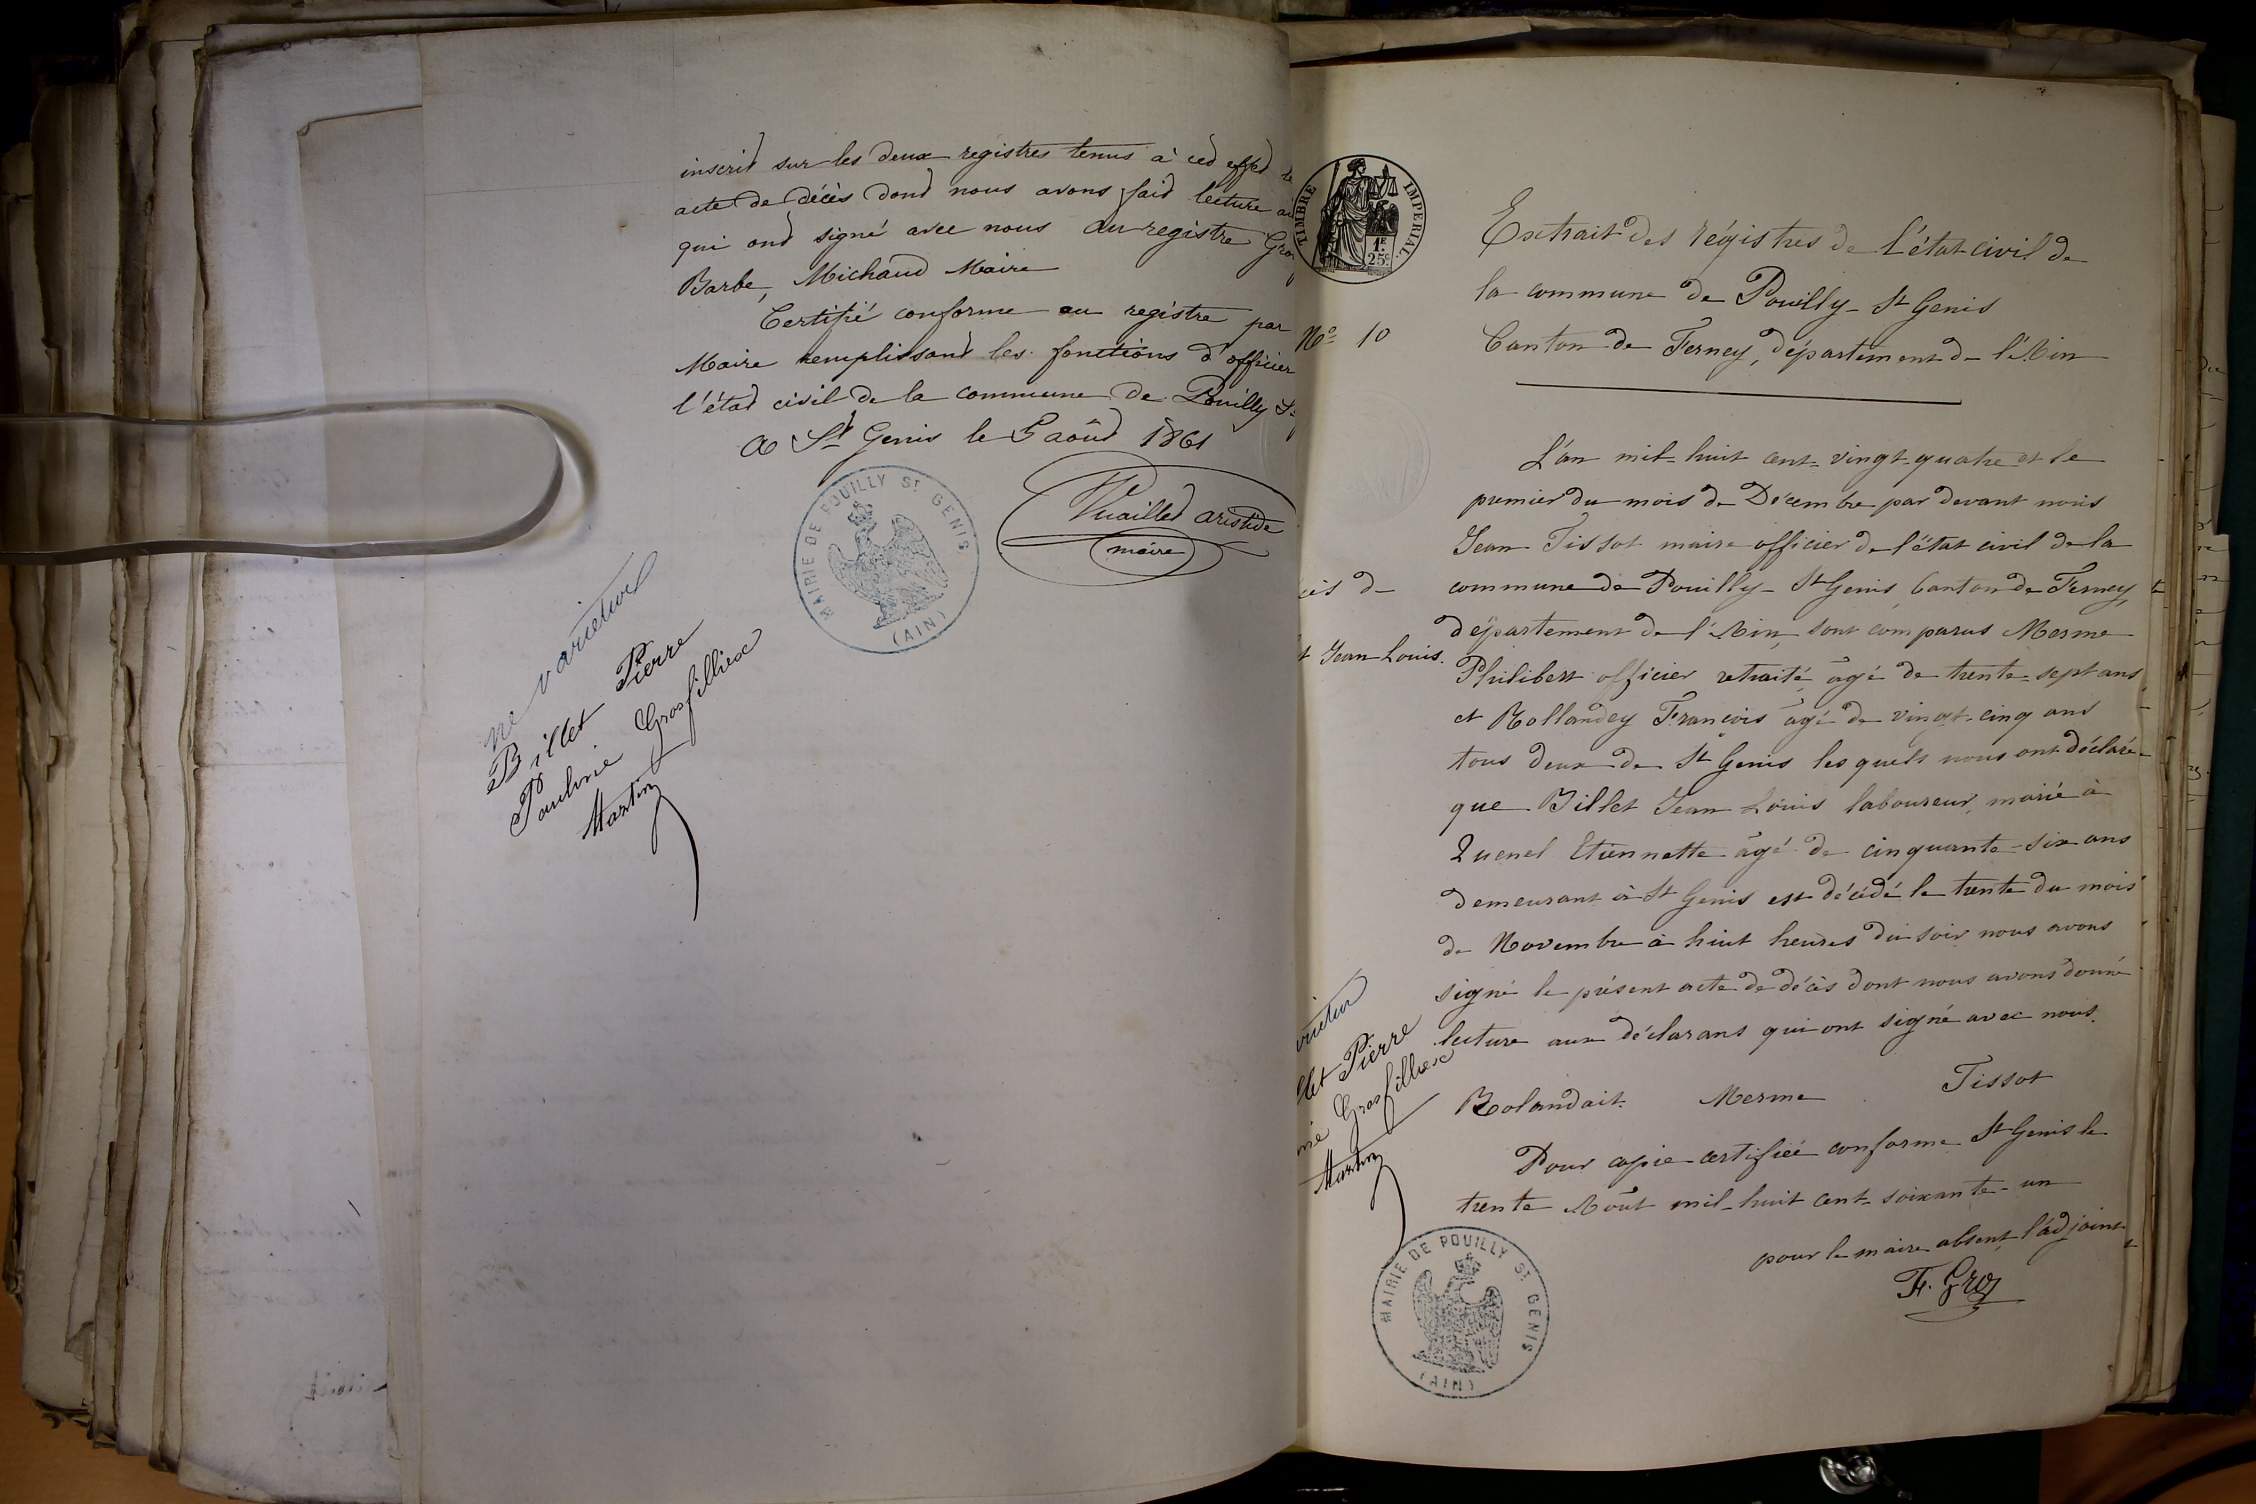 inscrit sur les deux registres tenus à cet effet
acte de décès dont nous avons fait lecture
qui ont signé avec nous au registre Gros
Barbe, Michaud Maire
Certifié conforme au registre par
Maire remplissant les fonctions d'officier
l'état civil de la commune de Pouilly St
A St Genis le 5 août 1861
Vuaillet aristide
maire
MAIRIE DE POUILLY St GENIS
(AIN)
ne varietur
Billet Pierre
Paulvie Grosfilliex
Martin
TIMBRE IMPERIAL.
1F.
25c
No 10
Extrait des régistres de l'état civil de
la commune de Pouilly-St Genis
Canton de Ferney, département de l'Ain
L'an mil-huit cent-vingt-quatre et le
premier du mois de Décembre par devant nous
Jean Tissot maire officier de l'état civil de la
commune de Pouilly-St Genis, Canton de Ferney,
département de l'Ain, sont comparus Merme
Philibert officier retraité, âgé de trente-sept ans
et Rollandey François âgé de vingt-cinq ans
tous deux de St Genis lesquels nous ont déclaré
que Billet Jean Louis laboureur, marié à
Quenel Etiennette âgé de cinquante-six ans
demeurant à St Genis est décédé le trente du mois
de Novembre à huit heures du soir nous avons
signé le présent acte de décès dont nous avons donné
lecture aux déclarans qui ont signé avec nous.
Rolandait. Merme Tissot
Pour copie certifiée conforme St Genis le
trente Août mil-huit cent-soixante-un
pour le maire absent l'adjoint
F. Gros
de
Jean Louis.
Pierre
Grosfilliex
Martin
MAIRIE DE POUILLY St GENIS
(AIN)